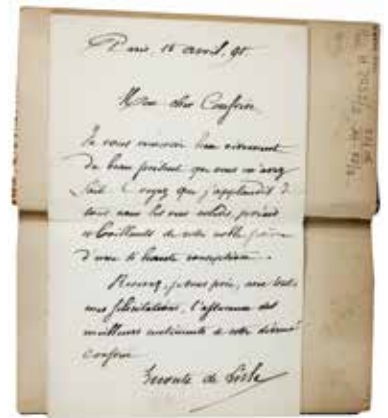 Paris, 15 avril, 91
Mon cher Confrère,
Je vous remercie bien vivement
du beau présent que vous m'avez
fait. Croyez que j'applaudis à
tous les vers solides, précis
et brillants de votre noble poème
d'une si haute conception.
Recevez, je vous prie, avec toutes
mes félicitations, l'assurance des
meilleurs sentiments de votre dévoué
confrère
Leconte de Lisle